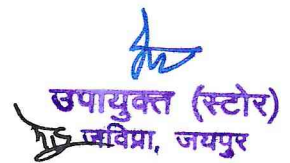 उपायुक्त (स्टोर)
जविप्रा, जयपुर